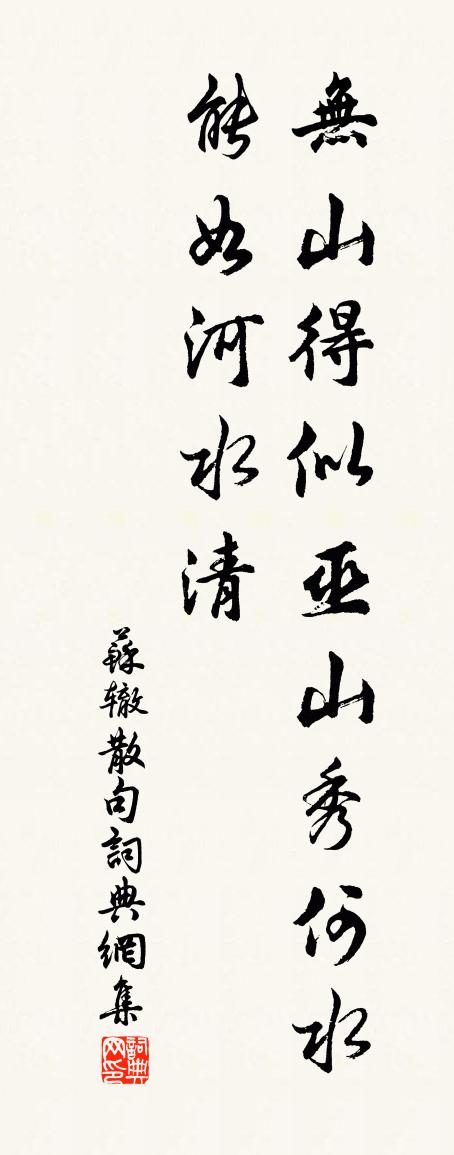 無山得似巫山秀何水
能如河水清
蘇辙散句詞典網集
詞典网印